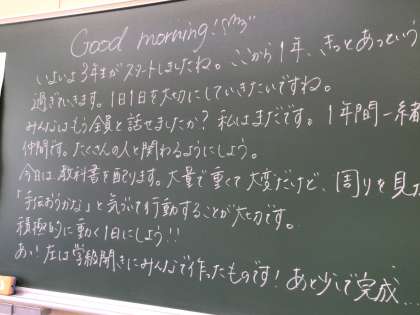 Good morning!!
いよいよ3年生がスタートしましたね。ここから1年、きっとあっという
過ぎていきます。1日1日を大切にしていきたいですね。
みんなはもう全員と話せましたか？私はまだです。1年間一緒
仲間です。たくさんの人と関わるようにしよう。
今日は教科書を配ります。大量で重くて大変だけど、周りを見
「手伝おうかな」と気づいて行動することが大切です。
積極的に動く1日にしよう!!
あ、! 左は学級開きにみんなで作ったものです！あと少しで完成...